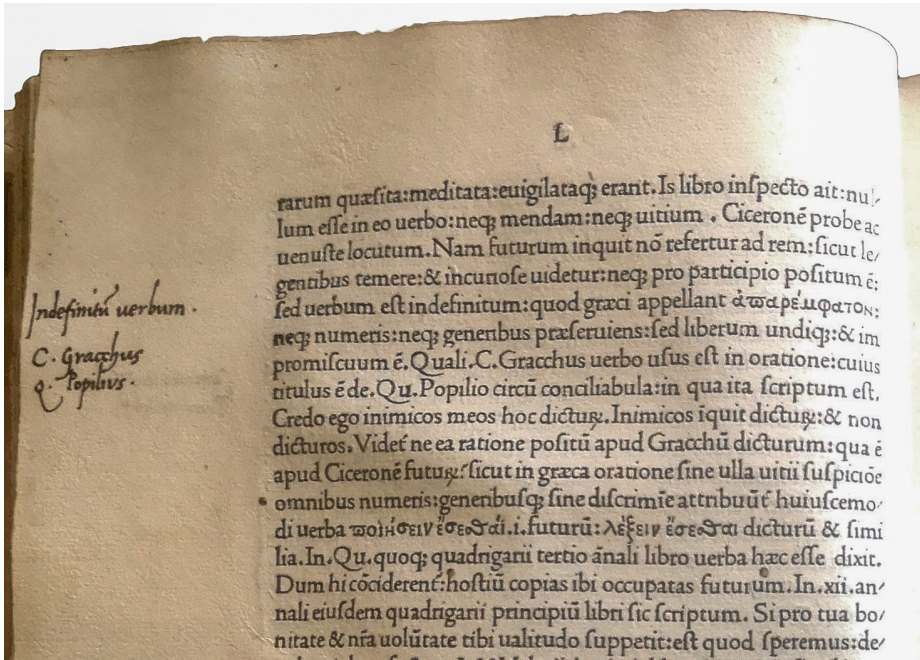 L
rarum quæsita:meditata:euigilataq; erant. Is libro inspecto ait:nul/
lum esse in eo uerbo:neq; mendam:neq; uitium . Ciceronē probe ac
uenuste locutum. Nam futurum inquit nō refertur ad rem:sicut le/
gentibus temere:& incuriose uidetur:neq; pro participio positum ē:
sed uerbum est indefinitum:quod græci appellant ἀπαρέμφατον:
neq; numeris:neq; generibus præseruiens:sed liberum undiq;:& im
promiscuum ē. Quali.C.Gracchus uerbo usus est in oratione:cuius
titulus ē de.Qu.Popilio circū conciliabula:in qua ita scriptum est.
Credo ego inimicos meos hoc dictuꝝ. Inimicos iquit dictuꝝ:& non
dicturos. Videt́ ne ea ratione positū apud Gracchū dicturum:qua ē
apud Ciceronē futuꝝ:sicut in græca oratione sine ulla uitii suspiciōe
omnibus numeris:generibusq; sine discrimīe attribuūt́ huiuscemo/
di uerba ποιήσειν ἔσεσθαι.i.futurū: λέξειν ἔσεσθαι dicturū & simi
lia.In.Qu.quoq; quadrigarii tertio ānali libro uerba hæc esse dixit.
Dum hi cōciderent́:hostiū copias ibi occupatas futurum. In.xii.an/
nali eiusdem quadrigarii principiū libri sic scriptum. Si pro tua bo/
nitate & nr̄a uolūtate tibi ualitudo suppetit:est quod speremus:de/
Indefinitū uerbum .
C. Gracchus
Q. Popilius.